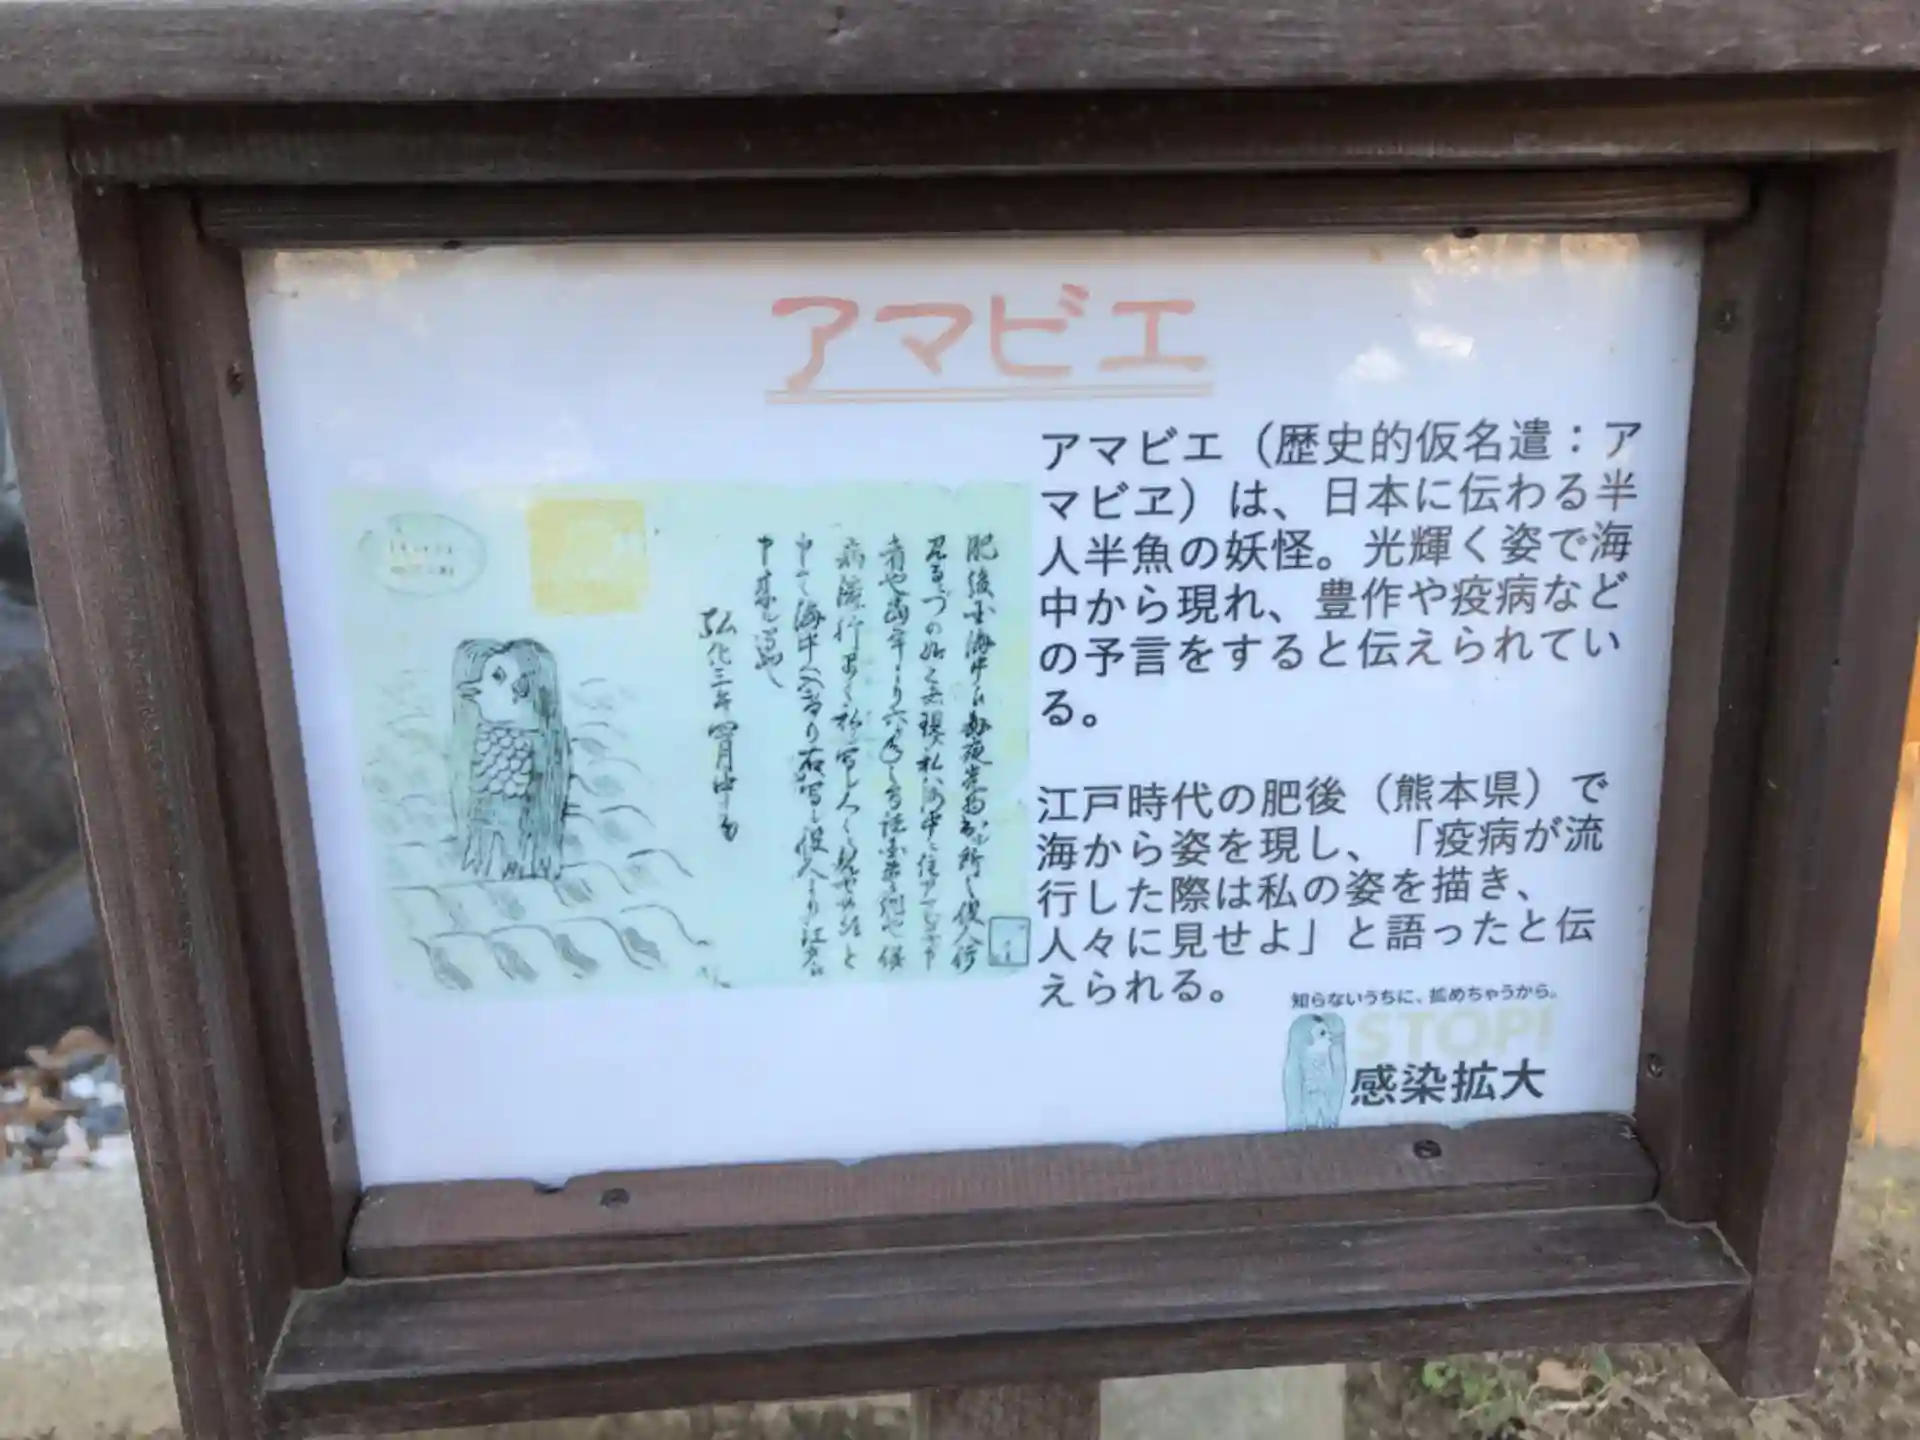 アマビエ
アマビエ（歴史的仮名遣：ア
マビヱ）は、日本に伝わる半
人半魚の妖怪。光輝く姿で海
中から現れ、豊作や疫病など
の予言をすると伝えられてい
る。
江戸時代の肥後（熊本県）で
海から姿を現し、「疫病が流
行した際は私の姿を描き、
人々に見せよ」と語ったと伝
えられる。
肥後国海中江毎夜光物出ル所之役人行
見るニづの如之者現ス私ハ海中ニ住アマビヱト申
者也當年より六ヶ年之間諸国豊作也併
病流行早々私ヲ写シ人々ニ見セ候得と
申て海中へ入けり右写シ役人より江戸江
申来ル写也
弘化三年四月中旬
知らないうちに、拡めちゃうから。
STOP!
感染拡大